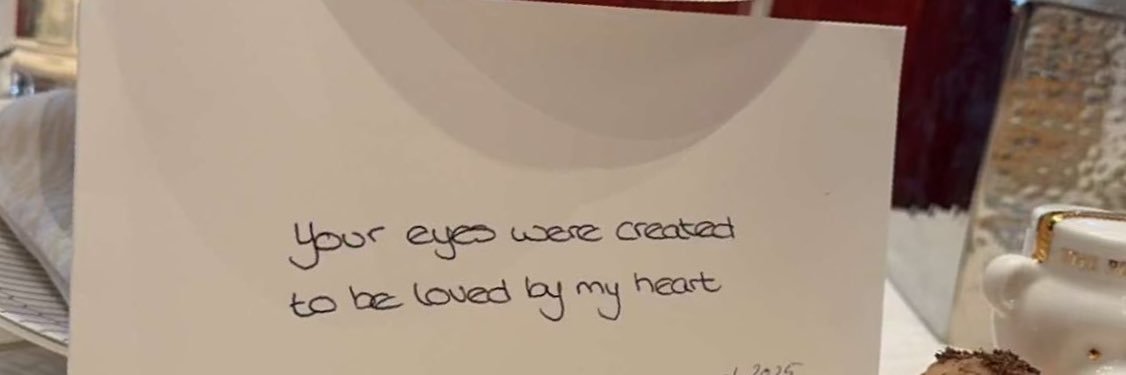 Your eyes were created
to be loved by my heart
2025